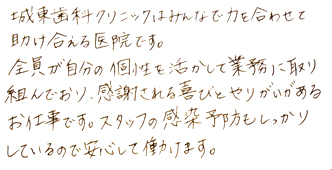 城東歯科クリニックはみんなで力を合わせて
助け合える医院です。
全員が自分の個性を活かして業務に取り
組んでおり、感謝される喜びとやりがいがある
お仕事です。スタッフの感染予防もしっかり
しているので安心して働けます。